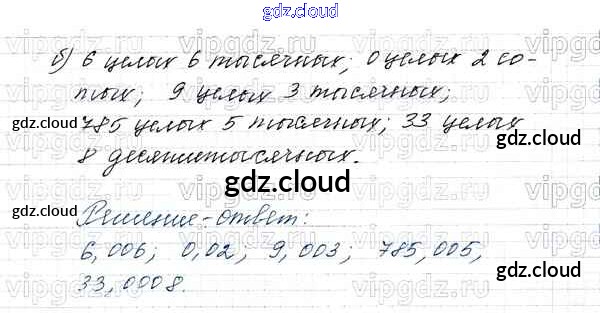 gdz.cloud
б) 6 целых 6 тысячных; 0 целых 2 со-
тых; 9 целых 3 тысячных;
785 целых 5 тысячных; 33 целых
8 десятитысячных.
gdz.cloud
gdz.cloud
gdz.cloud
gdz.cloud
Решение-ответ:
6,006; 0,02; 9,003; 785,005,
33,0008.
gdz.cloud
gdz.cloud